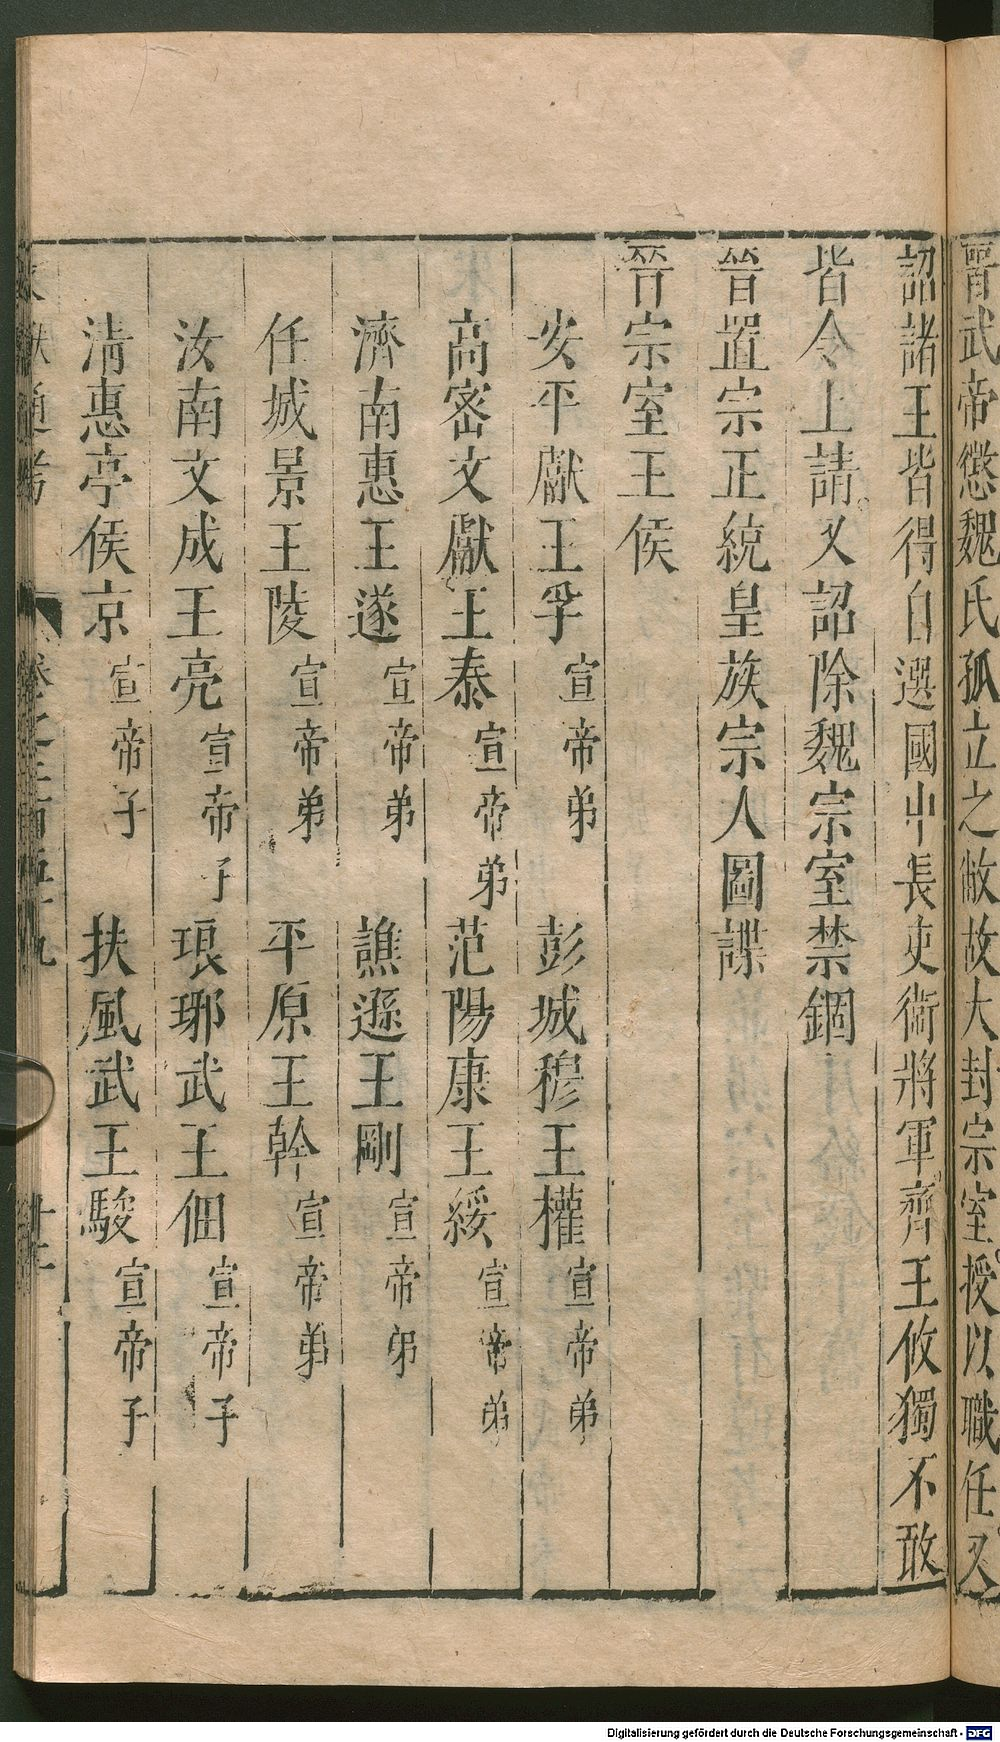 晋武帝懲魏氏孤立之敝故大封宗室授以職任又
詔諸王皆得自選國中長吏衛將軍齊王攸獨不敢
皆令上請又詔除魏宗室禁錮
晉置宗正統皇族宗人圖諜
晉宗室王侯
安平獻王孚 宣帝弟 彭城穆王權 宣帝弟
高密文獻王泰 宣帝弟 范陽康王綏 宣帝弟
濟南惠王遂 宣帝弟 譙遜王剛 宣帝弟
任城景王陵 宣帝弟 平原王幹 宣帝弟
汝南文成王亮 宣帝子 琅琊武王伷 宣帝子
清惠亭侯京 宣帝子 扶風武王駿 宣帝子
文獻通考 卷之二百五十九
Digitalisierung gefördert durch die Deutsche Forschungsgemeinschaft - DFG